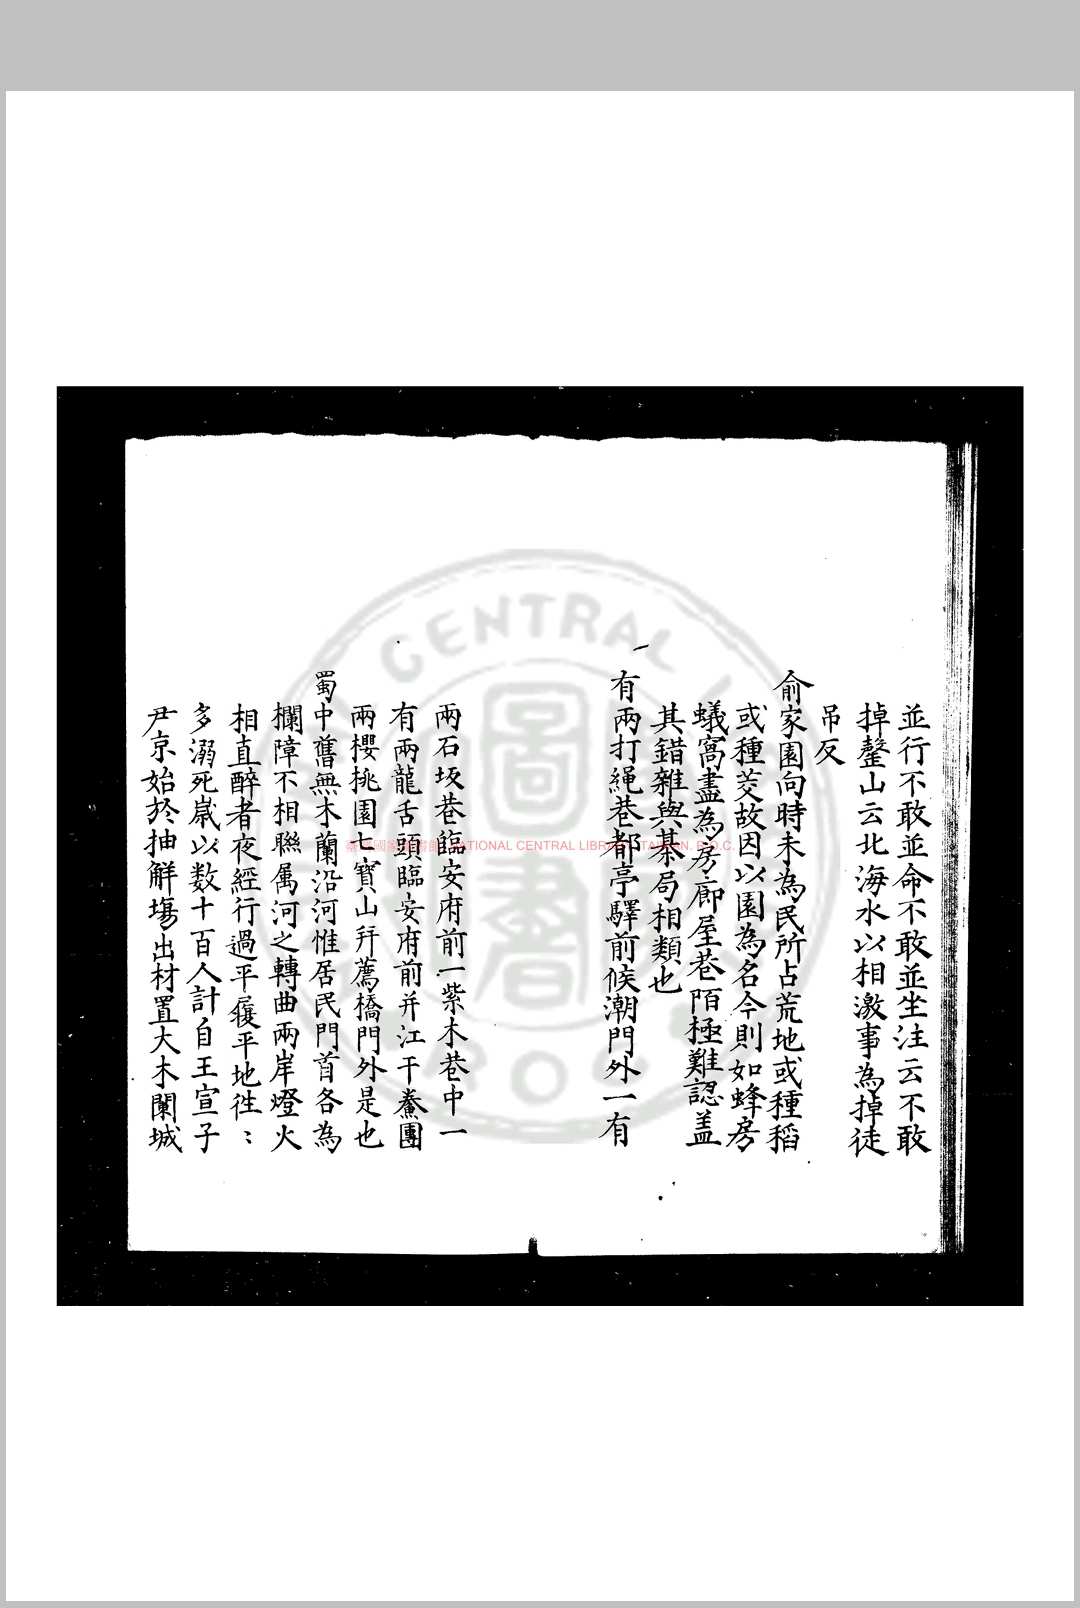 並行不敢並命不敢並坐注云不敢
掉鏊山云北海水以相激事為掉徒
吊反
俞家園向時未為民所占荒地或種稻
或種茭故因以園為名今則如蜂房
蟻窩盡為房廊屋巷陌極難認盖
其錯雜與棊局相類也
有兩打繩巷都亭驛前候潮門外一有
兩石坂巷臨安府前一紫木巷中一
有兩龍舌頭臨安府前并江干鯗團
兩櫻桃園七寳山幷薦橋門外是也
蜀中舊無木蘭沿河惟居民門首各為
欄障不相聮属河之轉曲兩岸燈火
相直醉者夜經行過平履平地徃〻
多溺死歲以数十百人計自王宣子
尹京始於抽解塲出材置大木闌城
CENTRAL
臺灣國家圖書館 NATIONAL CENTRAL LIBRARY, TAIWAN, R.O.C.
圖書